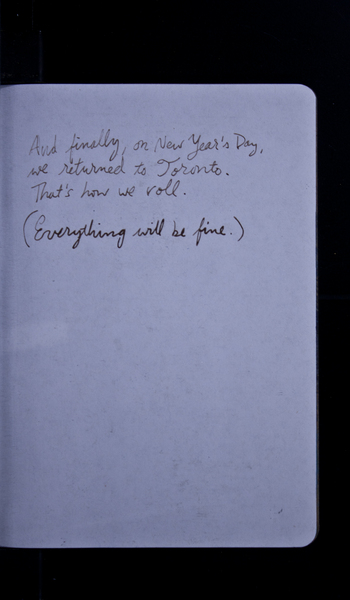 And finally, on New Year's Day,
we returned to Toronto.
That's how we roll.
(Everything will be fine.)